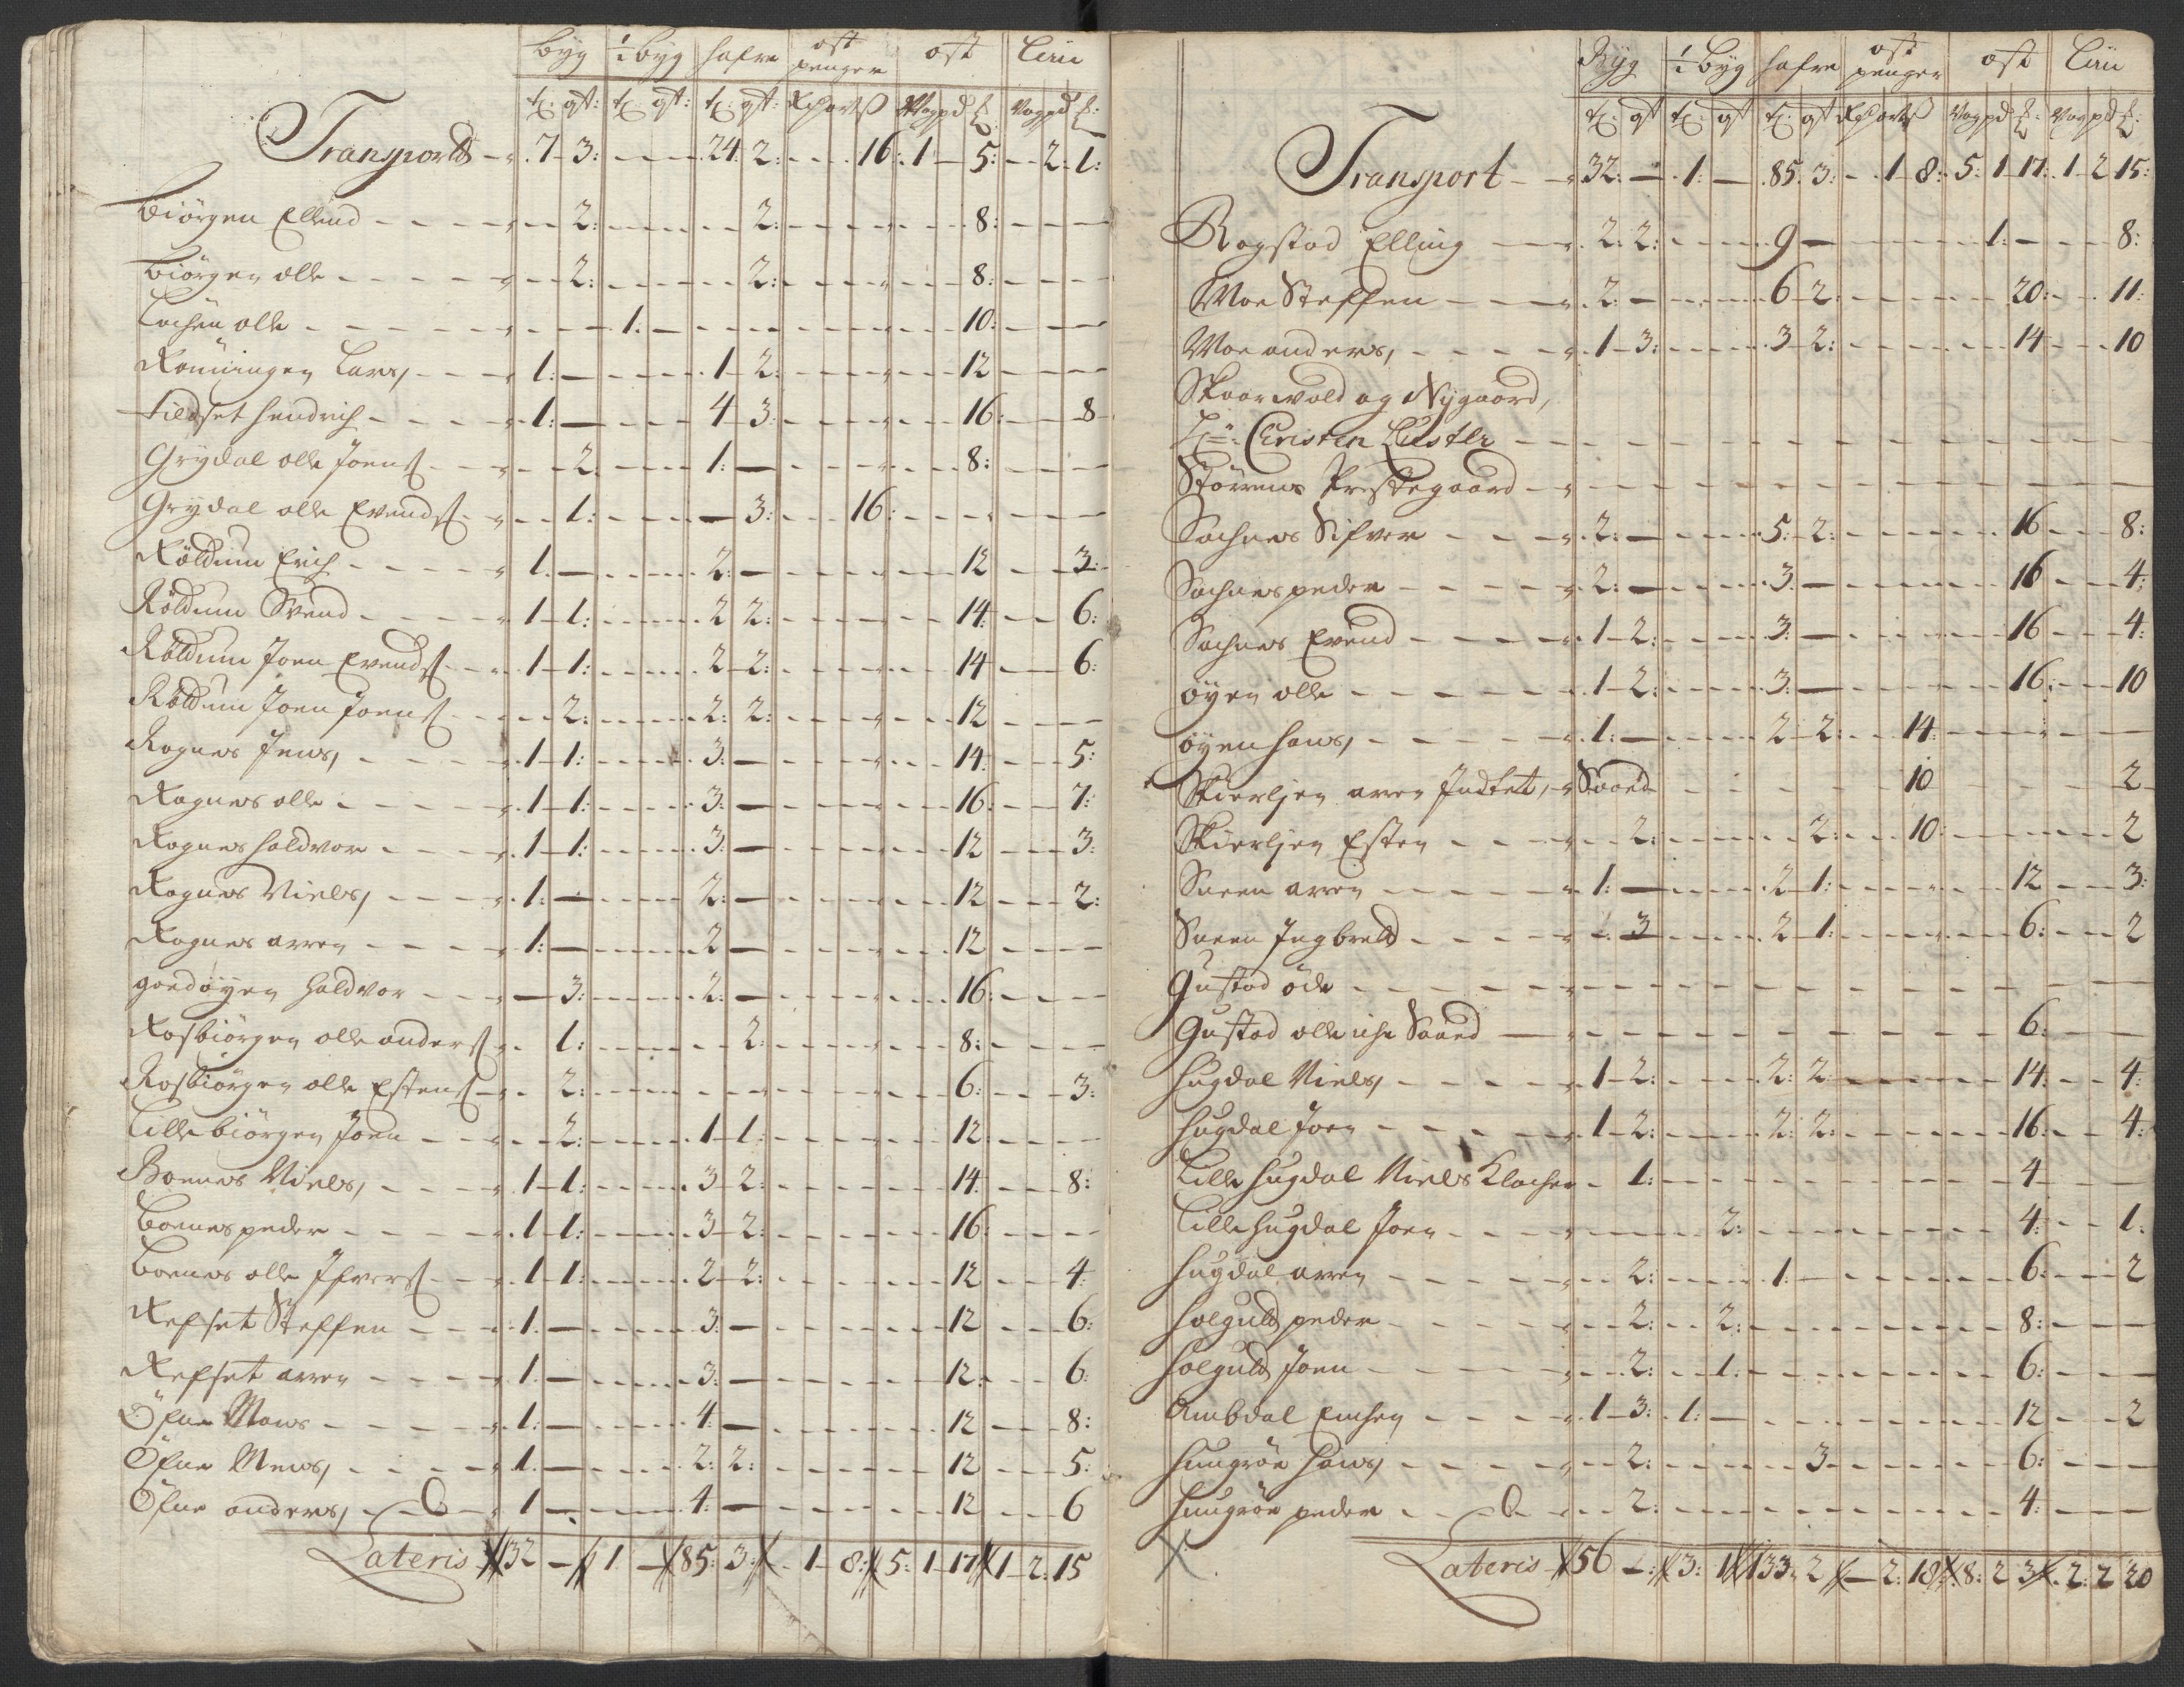 Byg ½ byg hafre ost penger ost Liin
Transport 7 3: 24: 2: 16: 1 5: 2: 1:
Biörgen Ellend 2: 2: 8:
Biörgen olle 2: 2: 8:
olle 1. 10:
Rönningen Lars, 1: 1 2: 12
Fildset hendrich 1: 4 3 16: 8
Grydal olle Joens 2: 1: 8:
Grydal olle Evends 1: 3: 16:
Röldum Erich 1. 2: 12 3:
Röldum Svend 1 1: 2 2: 14: 6:
Röldum Joen Evends 1 1: 2 2: 14 6:
Röldum Joen Joens 2: 2: 2: 12
Rognes Jens, 1 1: 3: 14: 5:
Rognes olle 1 1: 3: 16: 7:
Rognes haldvor 1 1: 3: 12 3:
Rognes Niels, 1: 2: 12 2:
Rognes arren 1: 2 12
goedøyen haldvor 3: 2: 16:
Rosbiörgen olle anders 1: 2: 8:
Rosbiörgen olle Estens 2: 6: 3:
Lille biörgen Joen 2: 1 1: 12:
Boenes Niels, 1 1: 3 2: 14 8:
Boenes peder 1 1: 3 2: 16:
Boenes olle Ifvers 1 1: 2 2: 12 4
Refset Steffen 1. 3: 12 6:
Refset arren 1. 3: 12: 6:
Öfne Mons 1: 4: 12 8:
Öfne Mens, 1: 2: 2: 12 5:
Öfne anders, 1 4: 12 6
Lateris 32 1 85: 3: 1 8: 5: 1 17 1 2: 15
Byg ½ byg hafre ost penger ost Liin
Transport 32: 1: 85. 3: 1 8: 5: 1 17: 1 2 15:
Rogstad Elling 2: 2: 9 1: 8:
Moe Steffen 2: 6 2: 20: 11:
Moe anders, 1 3: 3 2: 14 10
Skaarvold og Nygaard,
Christen Luster
Störrens Prestegaard
Sochnes Sifver 2: 5: 2: 16 8:
Sochnes peder 2: 3: 16 4:
Sochnes Evend 1 2: 3: 16 4:
öyen olle 1 2: 3: 16: 10
öyen hans, 1: 2 2: 14:
Skierljen arren Indtet, Saaed 10 2
Skierljen Esten 2: 2: 10: 2
Sneen arren 1: 2 1: 12 3:
Sneen Ingbreld 3 2 1: 6: 2
Gustad öde
Gustad olle iche Saaed 6:
hugdal Niels, 1 2: 2: 2 14: 4:
hugdal Joen 1 2: 2: 2: 16: 4:
Lille hugdal Niels Klocher 1: 4
Lille hugdal Joen 2: 4: 1.
hugdal arren 2: 1: 6: 2
holguld peder 2: 2: 8:
holguld Joen 2: 1: 6:
Ambdal 1 3: 1: 12 2
haugröe hans, 2: 3 6:
haugröe peder 2: 4:
Lateris 56 3: 1 133: 2 2: 18 8: 2 3 2: 2 20